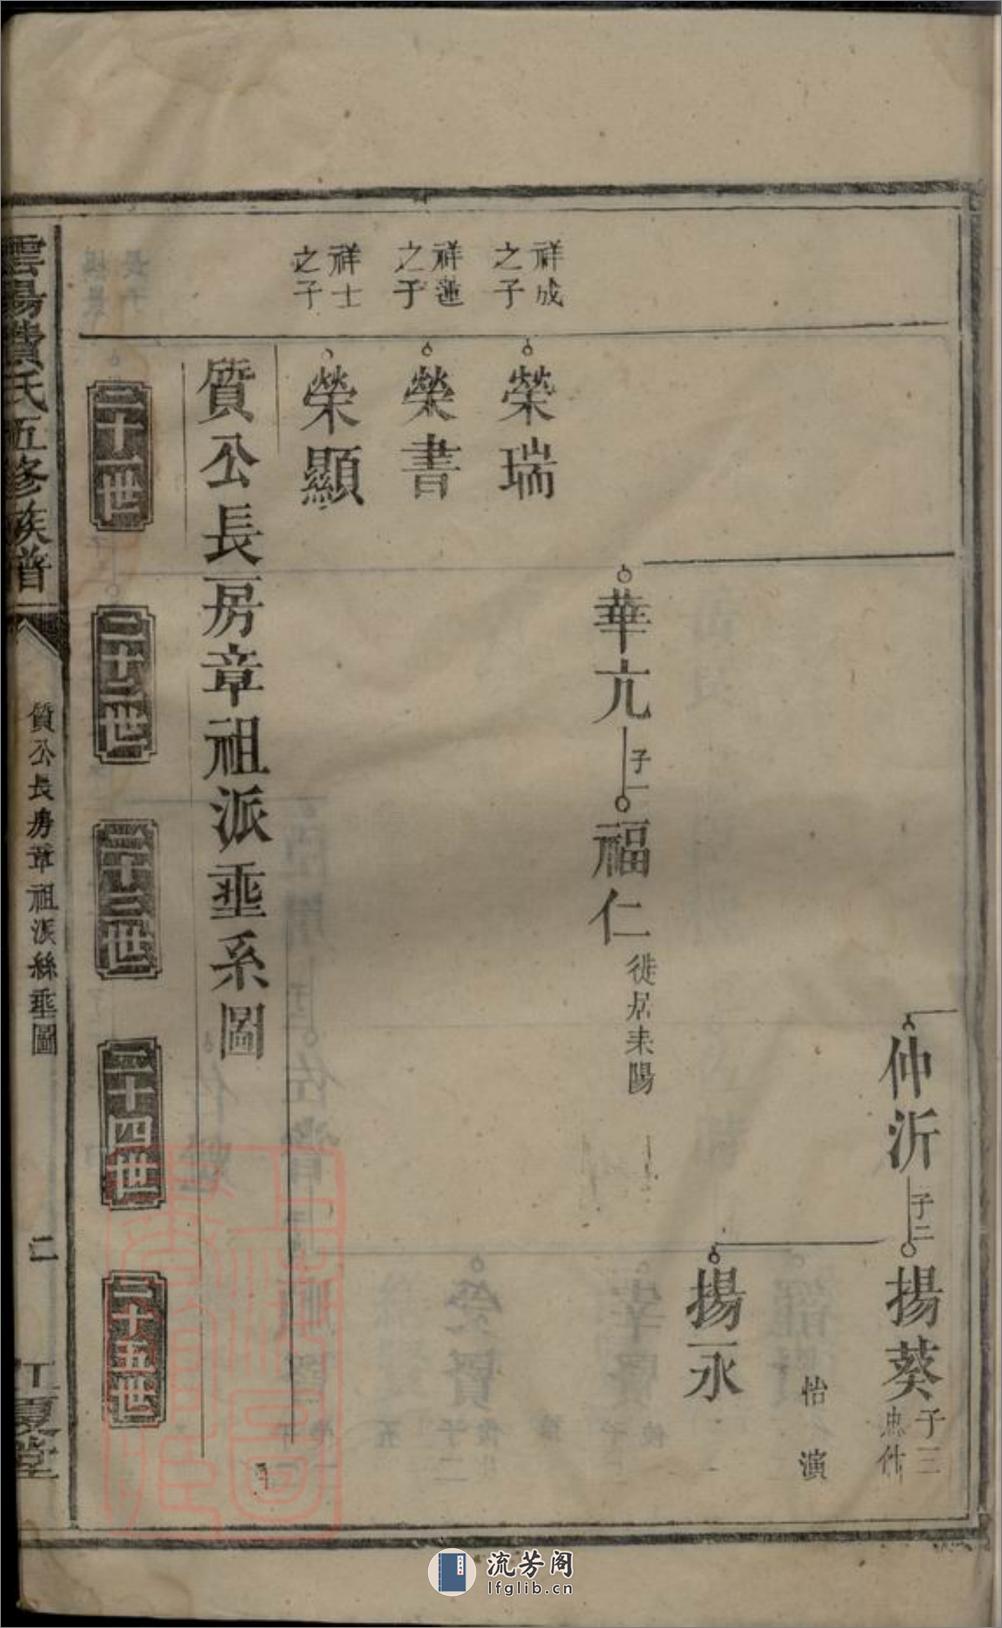 仲沂
子二
揚葵
子三
忠 怡 演
揚永
華亢
子一
福仁
徙居耒陽
祥成之子
榮瑞
祥蓮之子
榮書
祥士之子
榮顯
質公長房章祖派垂系圖
二十一世
二十二世
二十三世
二十四世
二十五世
雲陽費氏五修族譜
質公長房章祖派絲垂圖
二
江夏堂
流芳阁
lfglib.cn